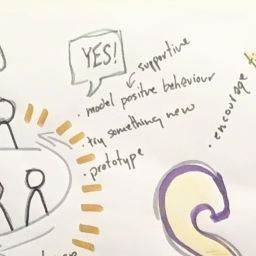 YES!
supportive
· model positive behaviour
· try something new
· prototype
· encourage